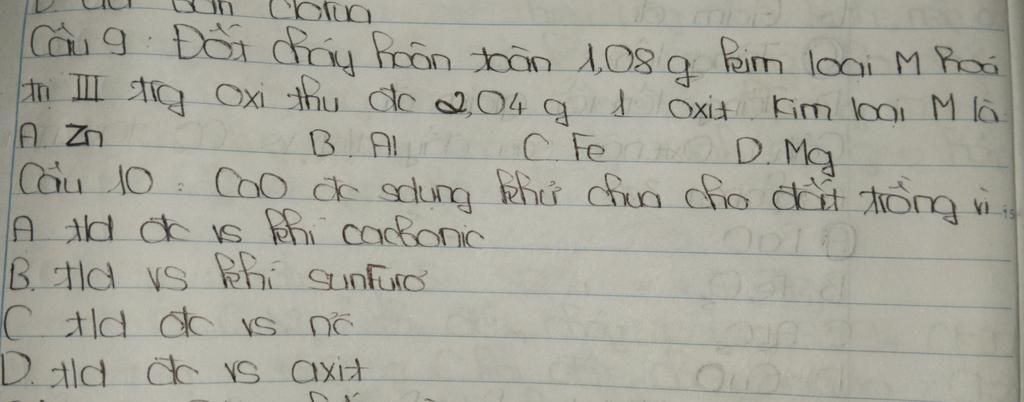 Câu 9: Đốt cháy hoàn toàn 1,08 g kim loại M hoá
trị III trg oxi thu đc 2,04 g 1 oxit. Kim loại M là
A. Zn B. Al C. Fe D. Mg
Câu 10: CaO đc sdụng khử chua cho đất trồng vì
A t/d đc vs khí cacbonic
B. t/d vs khí sunfurơ
C t/d đc vs nc
D. t/d đc vs axit